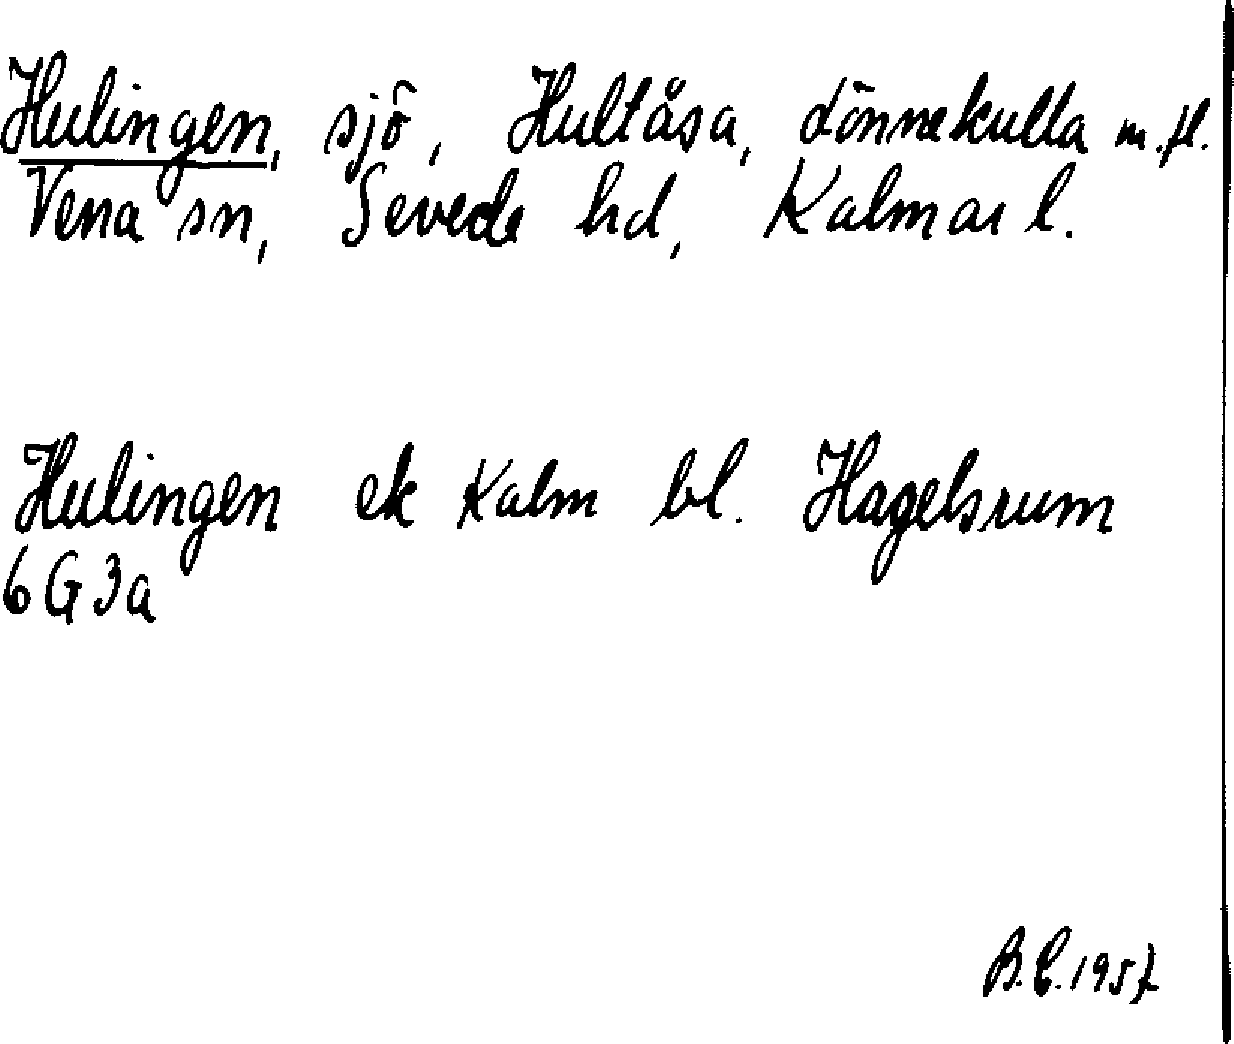 Hulingen, sjö, Hultåsa, Lönnekulla m.fl.
Vena sn, Sevede hd, Kalmar l.
Hulingen ek Kalm bl. Hagelsrum
6G3a
B.E.1957